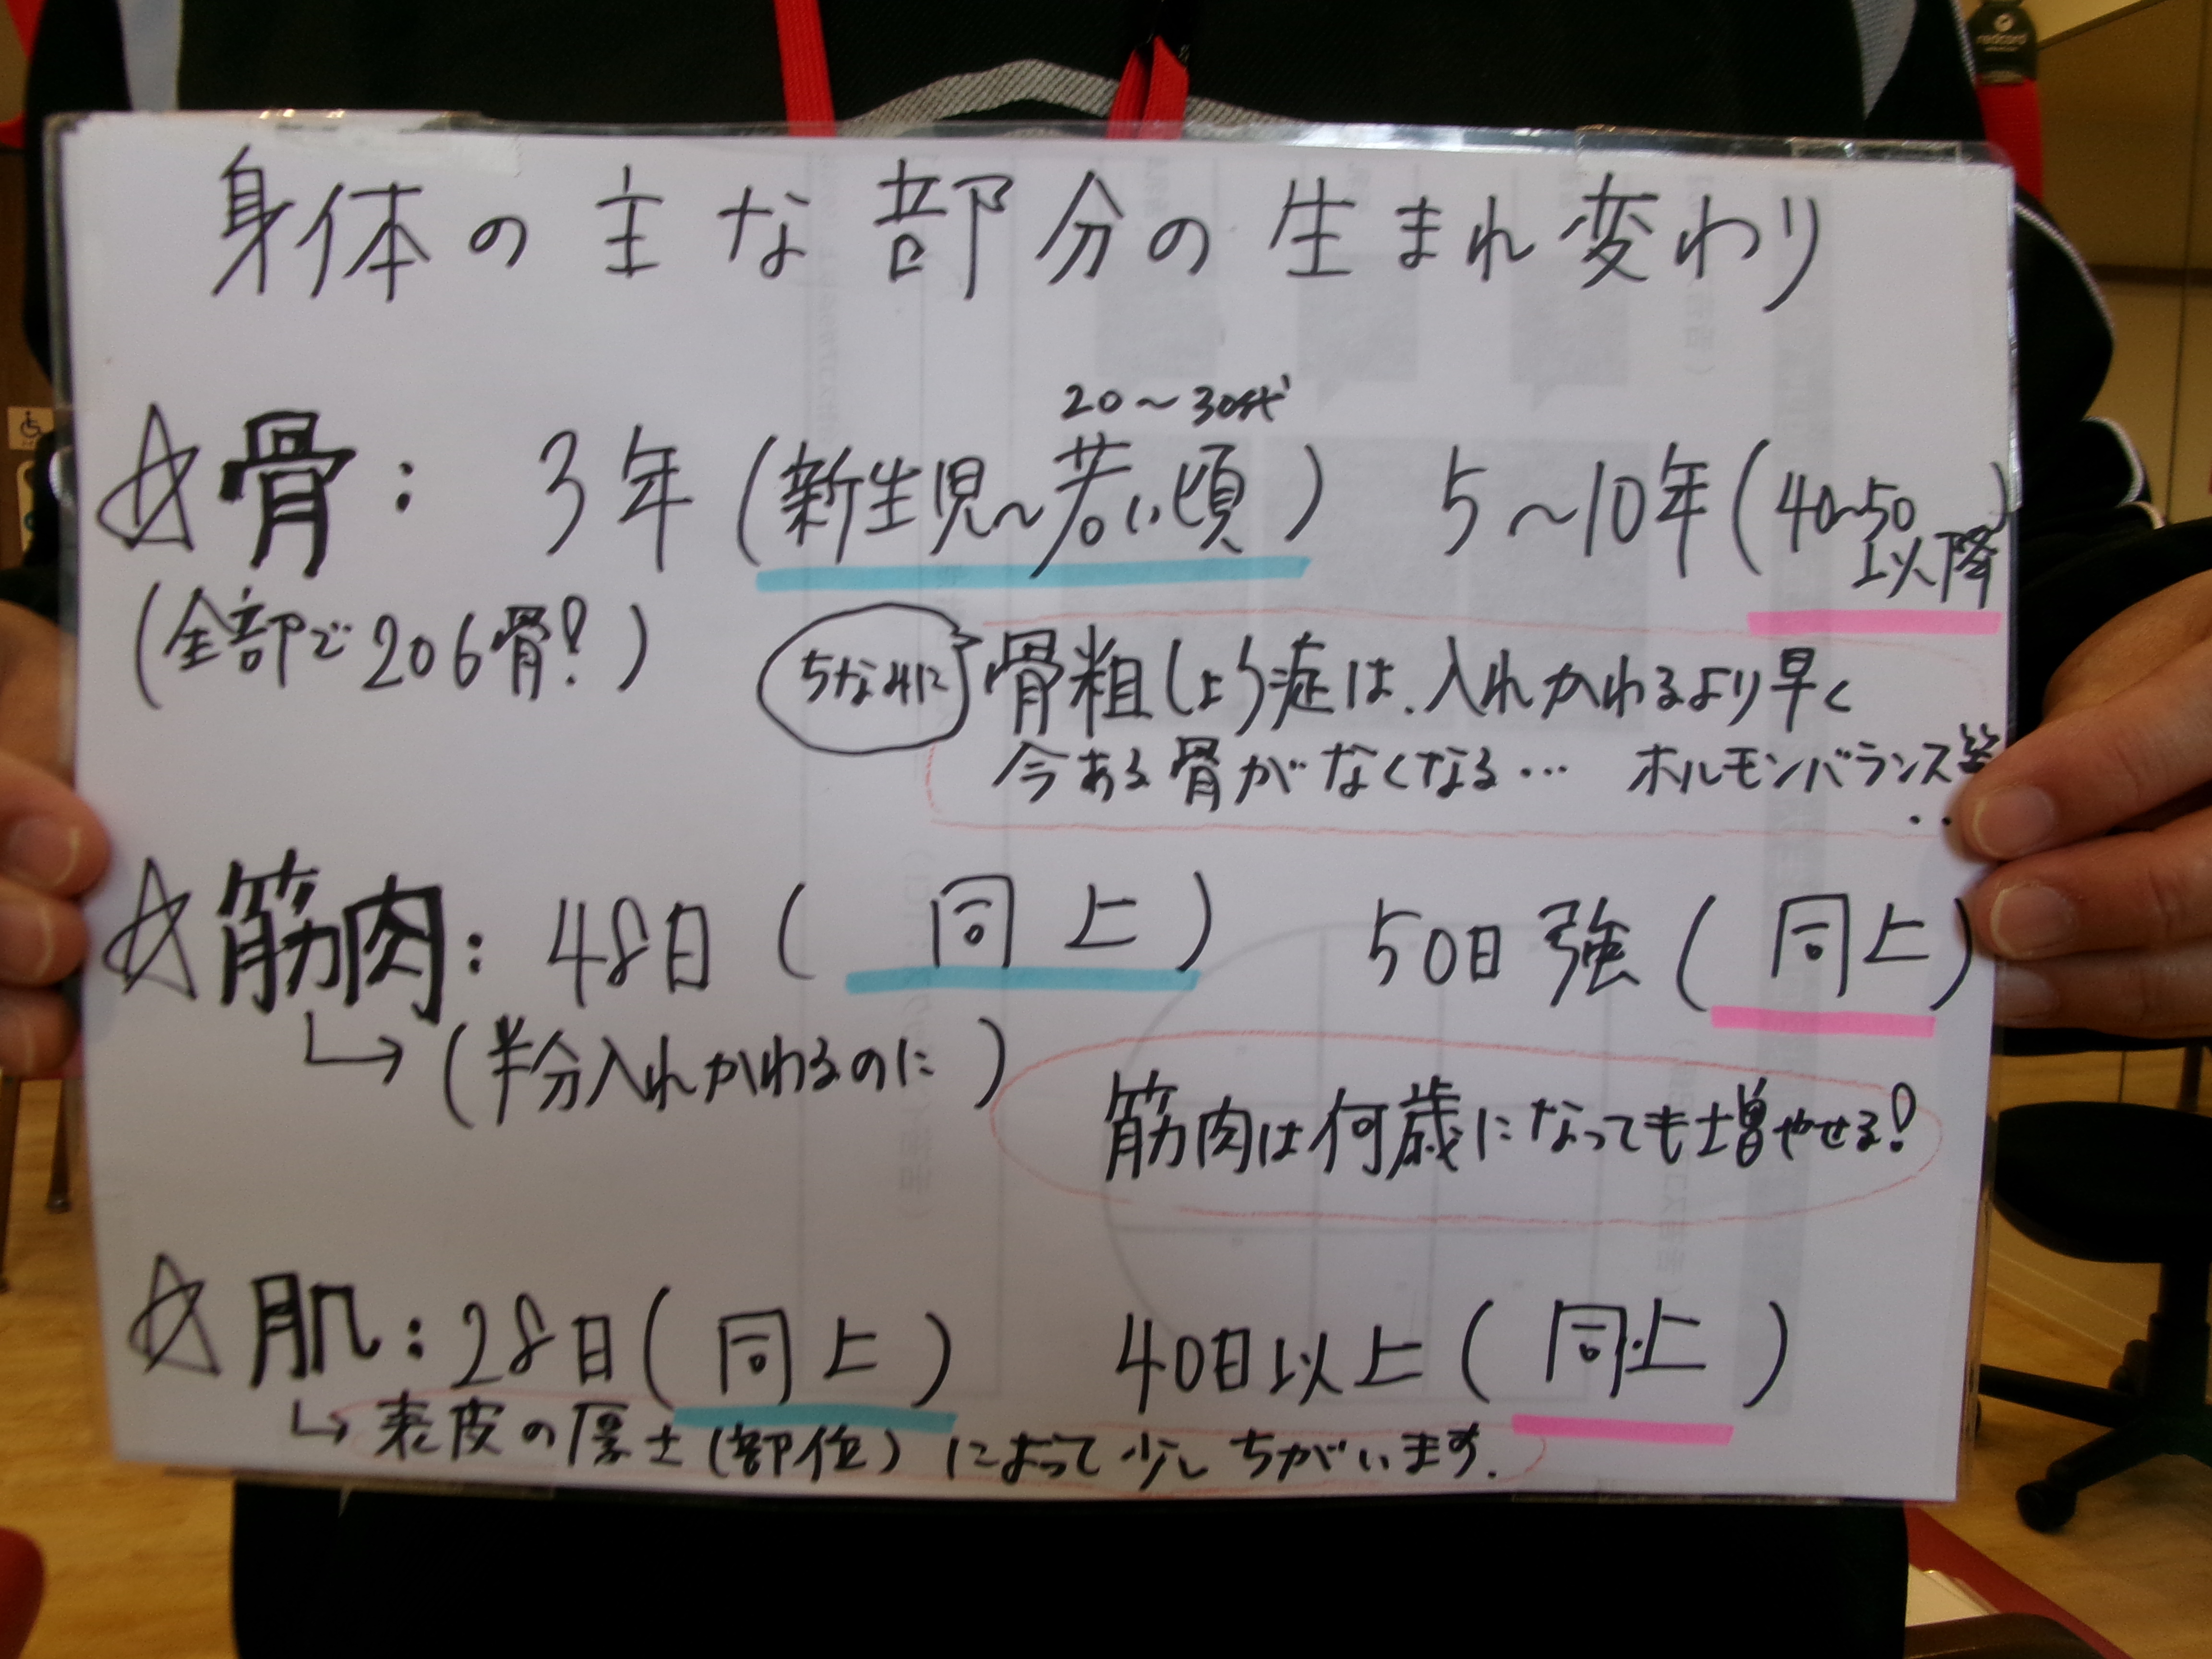 身体の主な部分の生まれ変わり
20〜30代
☆骨： 3年(新生児〜若い頃) 5〜10年(40〜50以降)
(全部で206骨！)
ちなみに
骨粗しょう症は、入れかわるより早く
今ある骨がなくなる… ホルモンバランス等‥
☆筋肉：48日(同上) 50日強(同上)
↳(半分入れかわるのに)
筋肉は何歳になっても増やせる！
☆肌：28日(同上) 40日以上(同上)
↳表皮の厚さ(部位)によって少しちがいます.
redcord